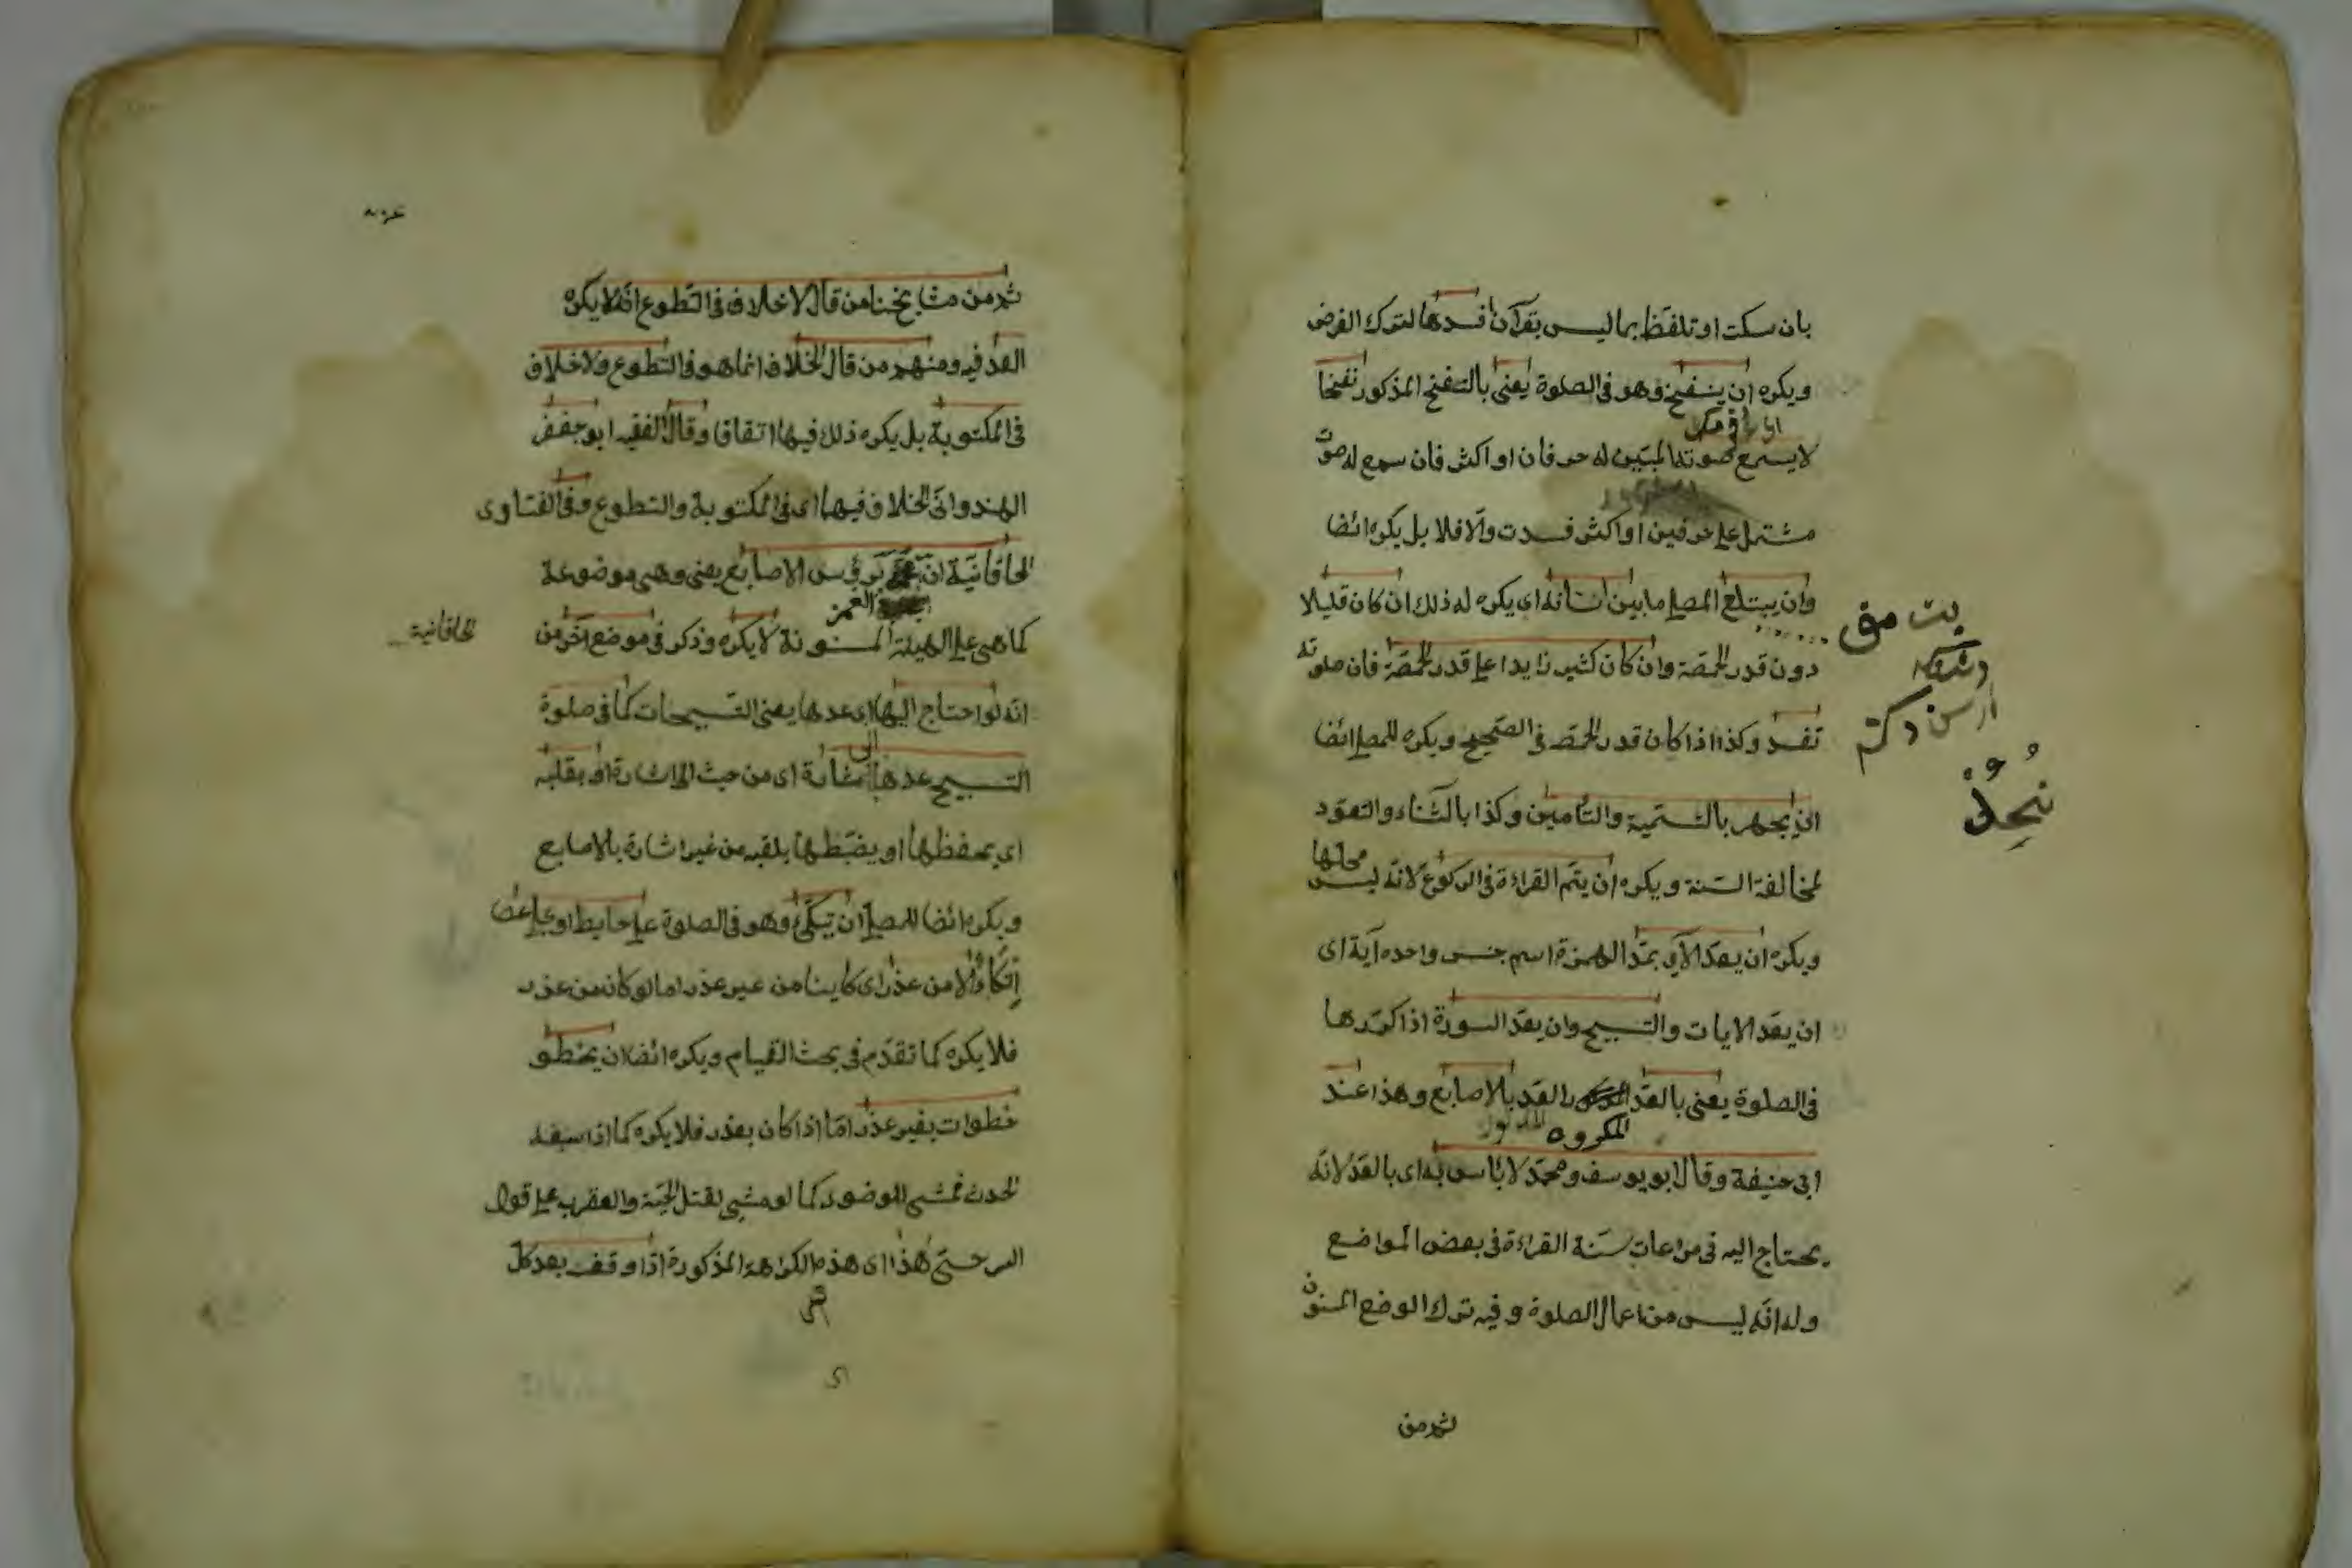 بان سكت او تلفظ بما ليس بقرآن افسدها لترك الفرض
ويكره ان ينفخ وهو فى الصلوة يعنى بالنفخ المذكور نفخا
لا يسمع صوته المبيّن له حرفان او اكثر فان سمع له صوت
مشتمل على حرفين او اكثر فسدت والّا فلا بل يكره ائضا
وان يبتلع المصلى ما بين اسنانه اى يكره له ذلك ان كان قليلا
دون قدر الحمّصة وان كان كثير زايدا على قدر الحمّصة فان صلوته
تفسد وكذا اذا كان قدر الحمّصه فى الصّحيح ويكره للمصلى ائضا
ان يجهر بالتسمية والتأمين وكذا بالثّناء والتعوّد
لمخالفة السّنة ويكره ان يتم القراءة فى الركوع لانّه ليس محلها
ويكره ان يعدّ الآى بمدّ الهمزة اسم جنس واحده آية اى
ان يعد الايات والتسبيح وان يعدّ السورة اذا كررها
فى الصلوة يعنى بالعدّ المكروه العد بالاصابع وهذا عند
ابى حنيفة وقال ابو يوسف ومحمّد لا بأس به اى بالعدّ لانّه
يحتاج اليه فى مراعات سنّة القراءة فى بعض المواضع
وله انّه ليس من اعمال الصلوة وفيه ترك الوضع المسنون
ثم من
ثم من مشايخنا من قال لا خلاف فى التّطوع انّه لا يكره
العدّ فيه ومنهم من قال الخلاف انما هو فى التطوع ولا خلاف
فى المكتوبة بل يكره ذلك فيها اتفاقا وقال الفقيه ابو جعفر
الهندوانى الخلاف فيهما اى فى المكتوبة والتطوع وفى الفتاوى
الخاقانيّة ان الغمز برؤس الاصابع يعنى وهى موضوعة
كما هى على الهيئة المسنونة لا يكره وذكر فى موضع آخر من
الخاقانية
انّه لو احتاج اليها اى عدها يعنى التسبيحات كما فى صلوة
التسبيح عدها اشارة اى من حيث الاشارة او بقلبه
اى يحفظها او يضبطها بلقبه من غير اشارة بالاصابع
ويكره ائضا للمصلى ان يتكّئ وهو فى الصلوة على حايط او على عصا
اتكاؤا لا من عذر اى كاينا من غير عذر اما لو كان من عذر
فلا يكره كما تقدّم فى بحث القيام ويكره ائضا ان يخطو
خطوات بغير عذر امّا اذا كان بعذر فلا يكره كما اذا سبقه
الحدث فمشى للوضوء كما لو مشى لقتل الحيّة والعقرب على قول
السرخسى هذا اى هذه الكراهة المذكورة اذا وقف بعد كل